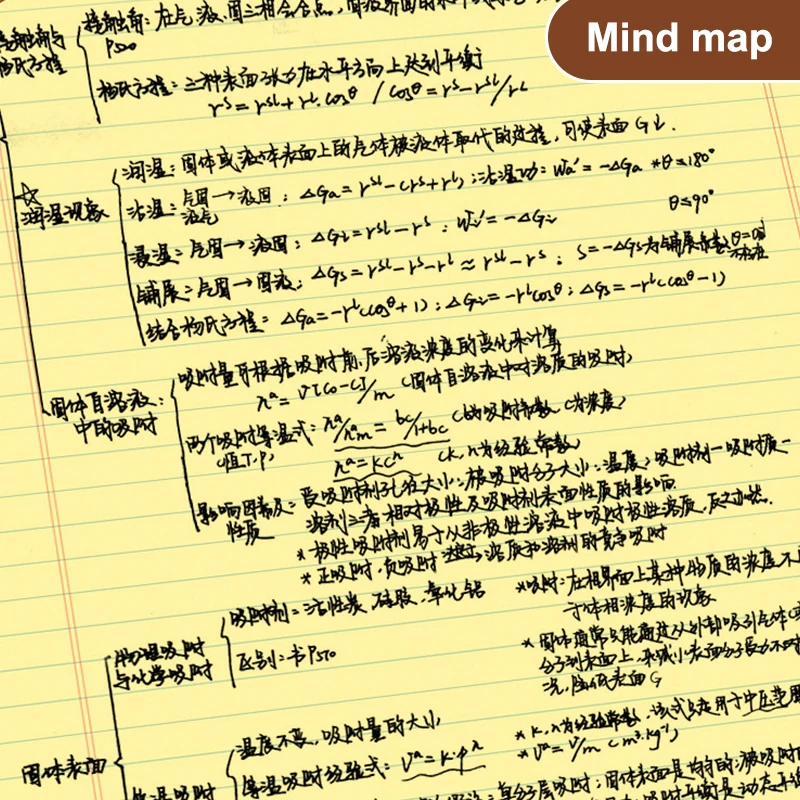 Mind map
接触角：在气、液、固三相会合点，固液界面的
P520
接触角与
杨氏方程
杨氏方程：三种表面张力在水平方向上达到平衡
rˢ = rˢᴸ + rᴸ·cosθ / cosθ = rˢ - rˢᴸ / rᴸ
润湿：固体或液体表面上的气体被液体取代的过程，可使表面G↓.
☆
润湿现象
沾湿：气固 → 液固；ΔGa = rˢᴸ - (rˢ + rᴸ)；沾湿功：Wa' = -ΔGa *θ≤180°
液气
浸湿：气固 → 液固；ΔGi = rˢᴸ - rˢ；Wi' = -ΔGi θ≤90°
铺展：气固 → 固液；ΔGs = rˢᴸ - rˢ - rᴸ ≈ rˢᴸ - rˢ；S = -ΔGs为铺展系数；θ=0或
不存在
结合杨氏方程：ΔGa = -rᴸ(cosθ+1)；ΔGi = -rᴸcosθ；ΔGs = -rᴸ(cosθ-1)
吸附量可根据吸附前、后溶液浓度的变化来计算
nᵃ = V(c₀-c)/m (固体自溶液中对溶质的吸附)
固体自溶液：
中的吸附
两个吸附等温式：nᵃ/nᵃm = bc/1+bc (b为吸附系数 c为浓度)
(恒T.P)
nᵃ = kcⁿ (k, n为经验常数)
影响因素及：受吸附剂孔径大小；被吸附分子大小；温度；吸附剂-吸附质-
性质
溶剂三者相对极性及吸附剂表面性质的影响
* 极性吸附剂易于从非极性溶液中吸附极性溶质，反之亦然.
* 正吸附、负吸附 溶质和溶剂的竞争吸附
吸附剂：活性炭、硅胶、氧化铝
*吸附：在相界面上某种物质的浓度不
于体相浓度的现象
物理吸附
与化学吸附
区别：书P510
* 固体通常只能通过从外部吸引气体
分子到表面上，来减小表面分子受力不对
况，降低表面G
温度不变，吸附量的大小
* k, n为经验常数，该式只适用于中压范围
固体表面
等温吸附经验式：Vᵃ = k·pⁿ
* Vᵃ = V/m (m³·kg⁻¹)
等温吸附
单分子层吸附；固体表面是均匀的；被吸附
吸附平衡是动态平衡